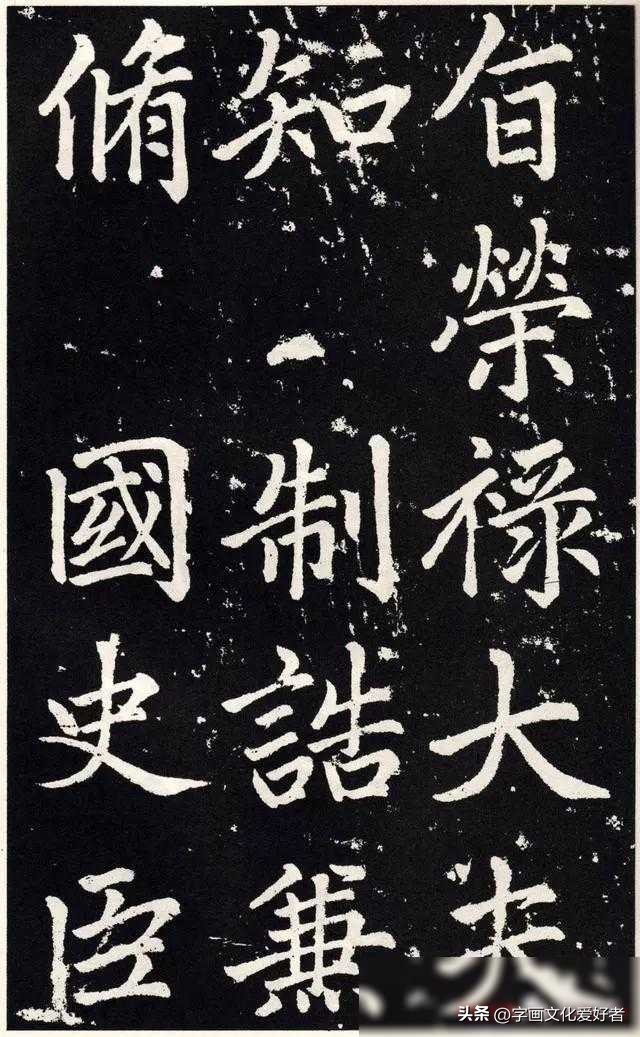 旨榮祿大夫
知制誥兼
脩國史臣
头条 @字画文化爱好者